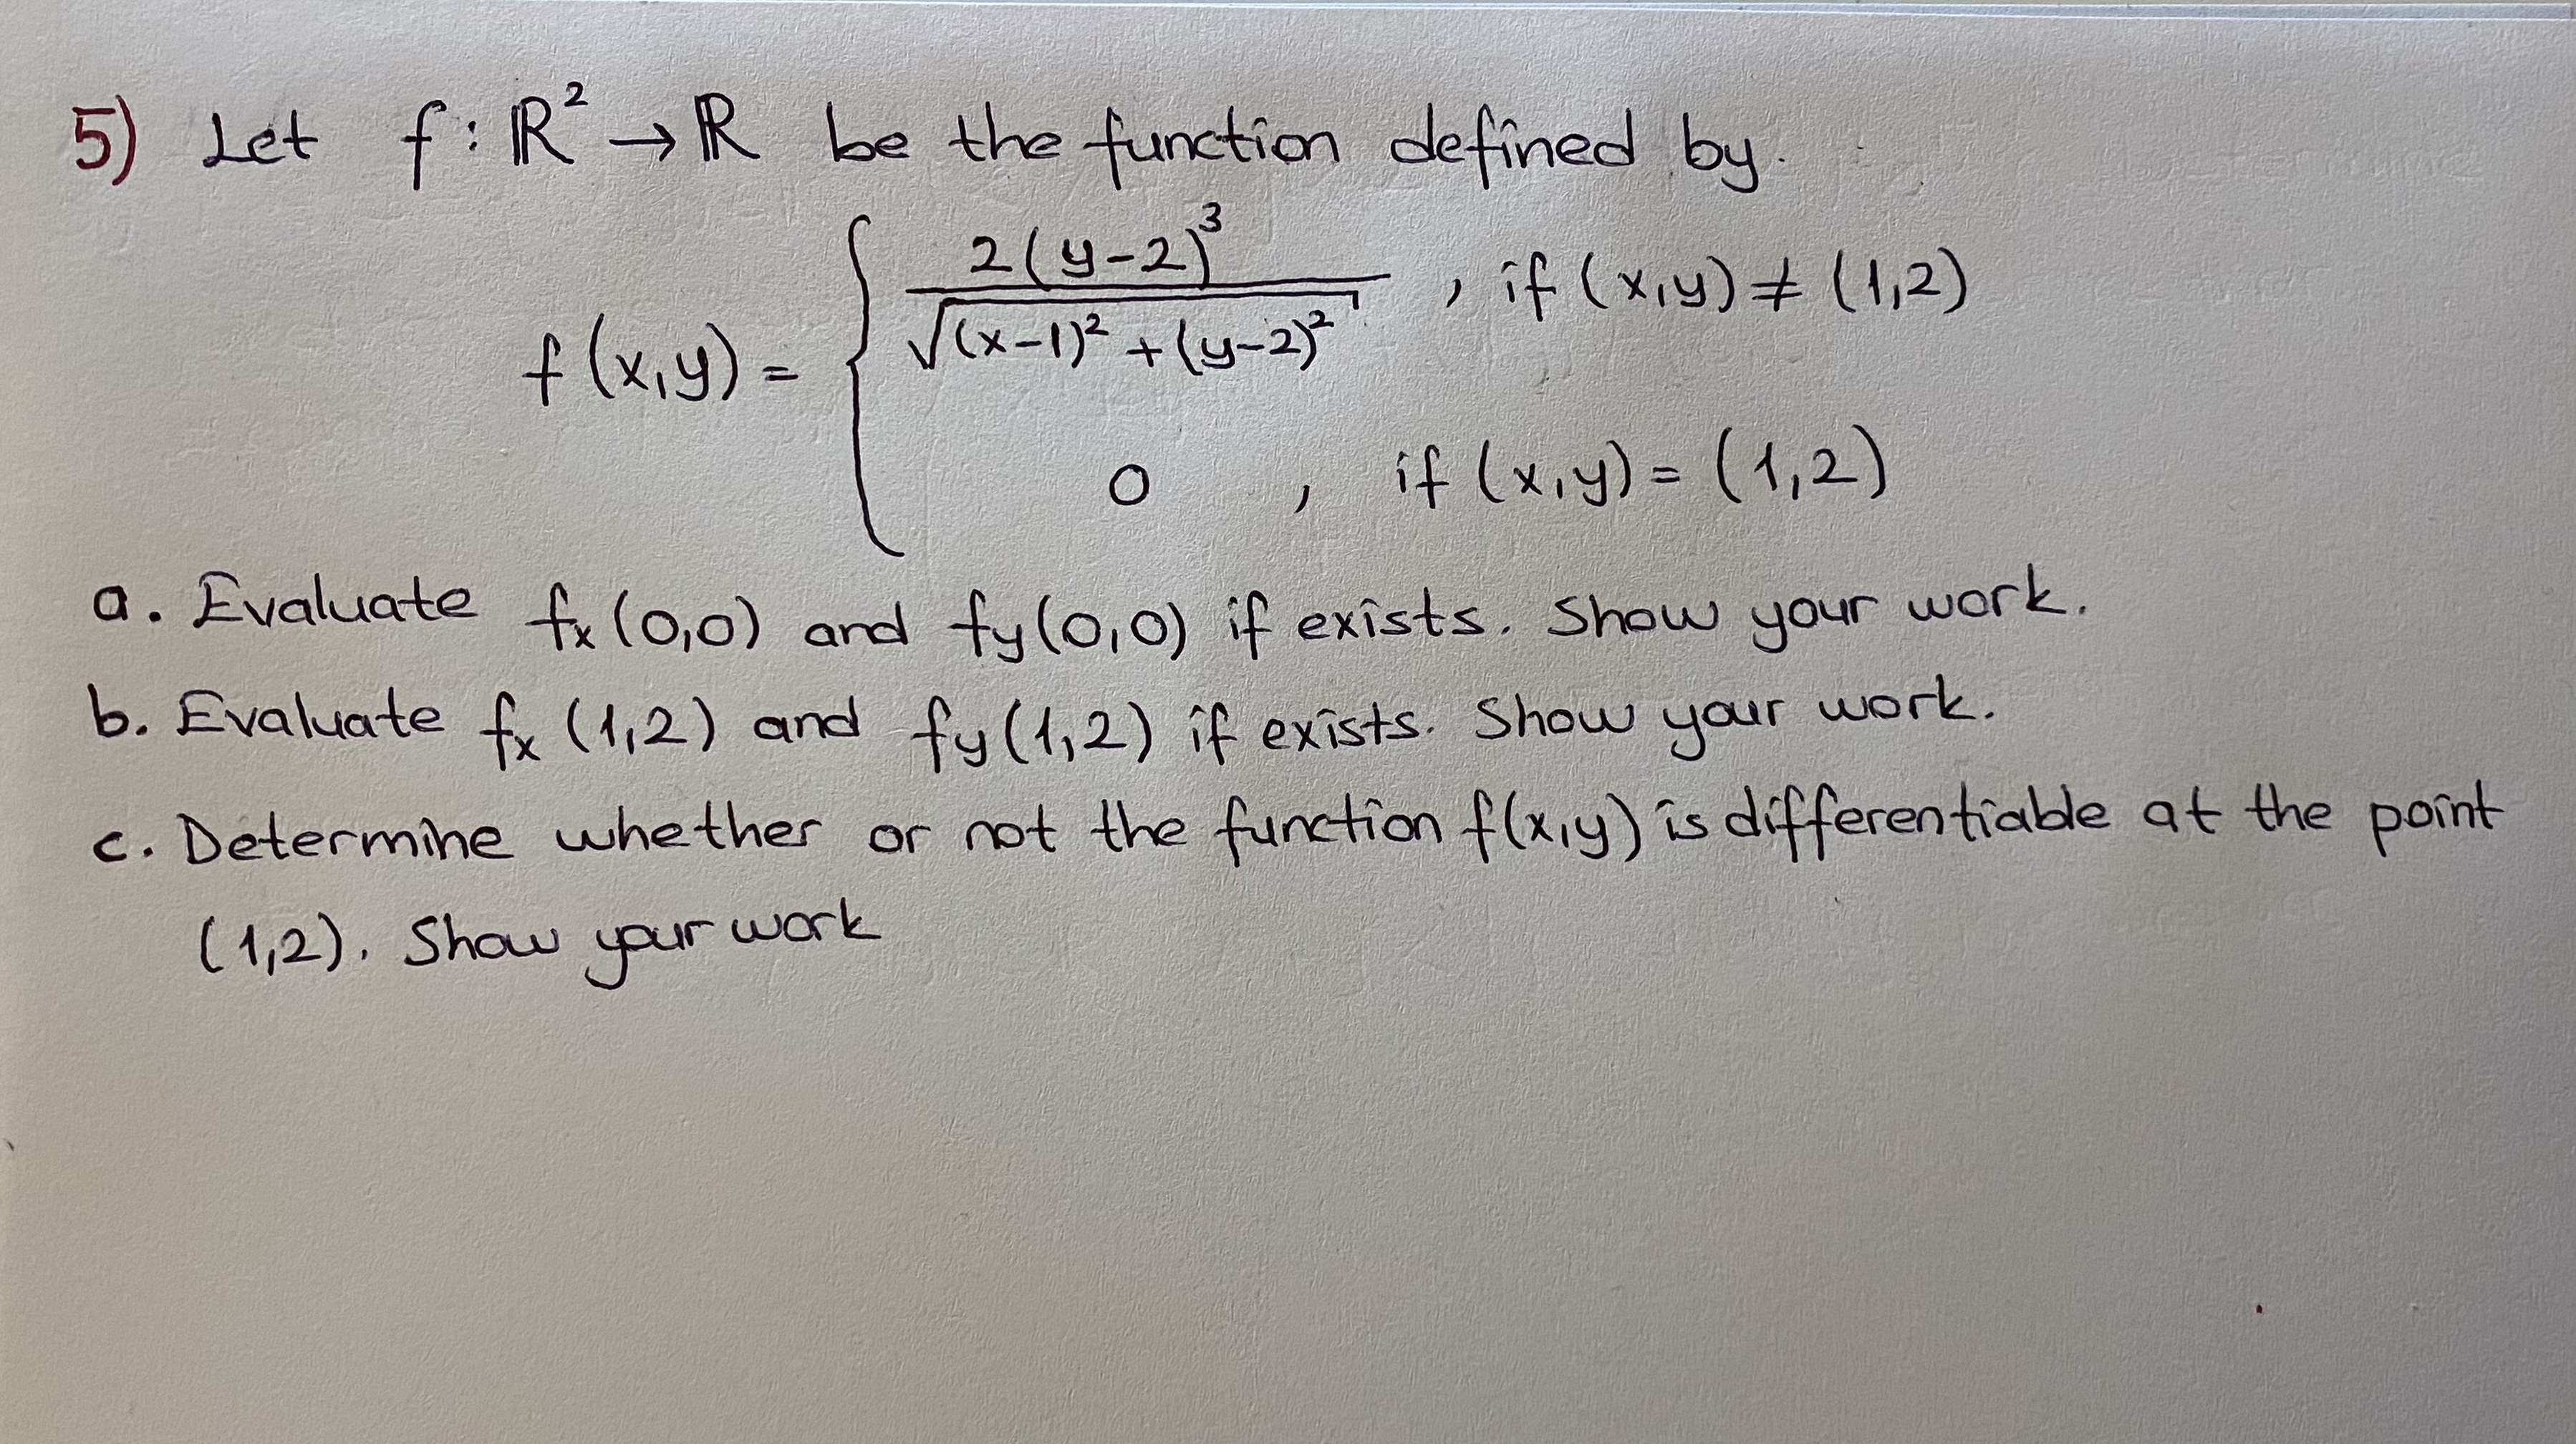 5) Let f : ℝ² → ℝ be the function defined by.
f(x,y) = { 2(y-2)³ / √((x-1)² + (y-2)²) , if (x,y) ≠ (1,2)
0 , if (x,y) = (1,2)
a. Evaluate fₓ(0,0) and f_y(0,0) if exists. Show your work.
b. Evaluate fₓ(1,2) and f_y(1,2) if exists. Show your work.
c. Determine whether or not the function f(x,y) is differentiable at the point
(1,2). Show your work